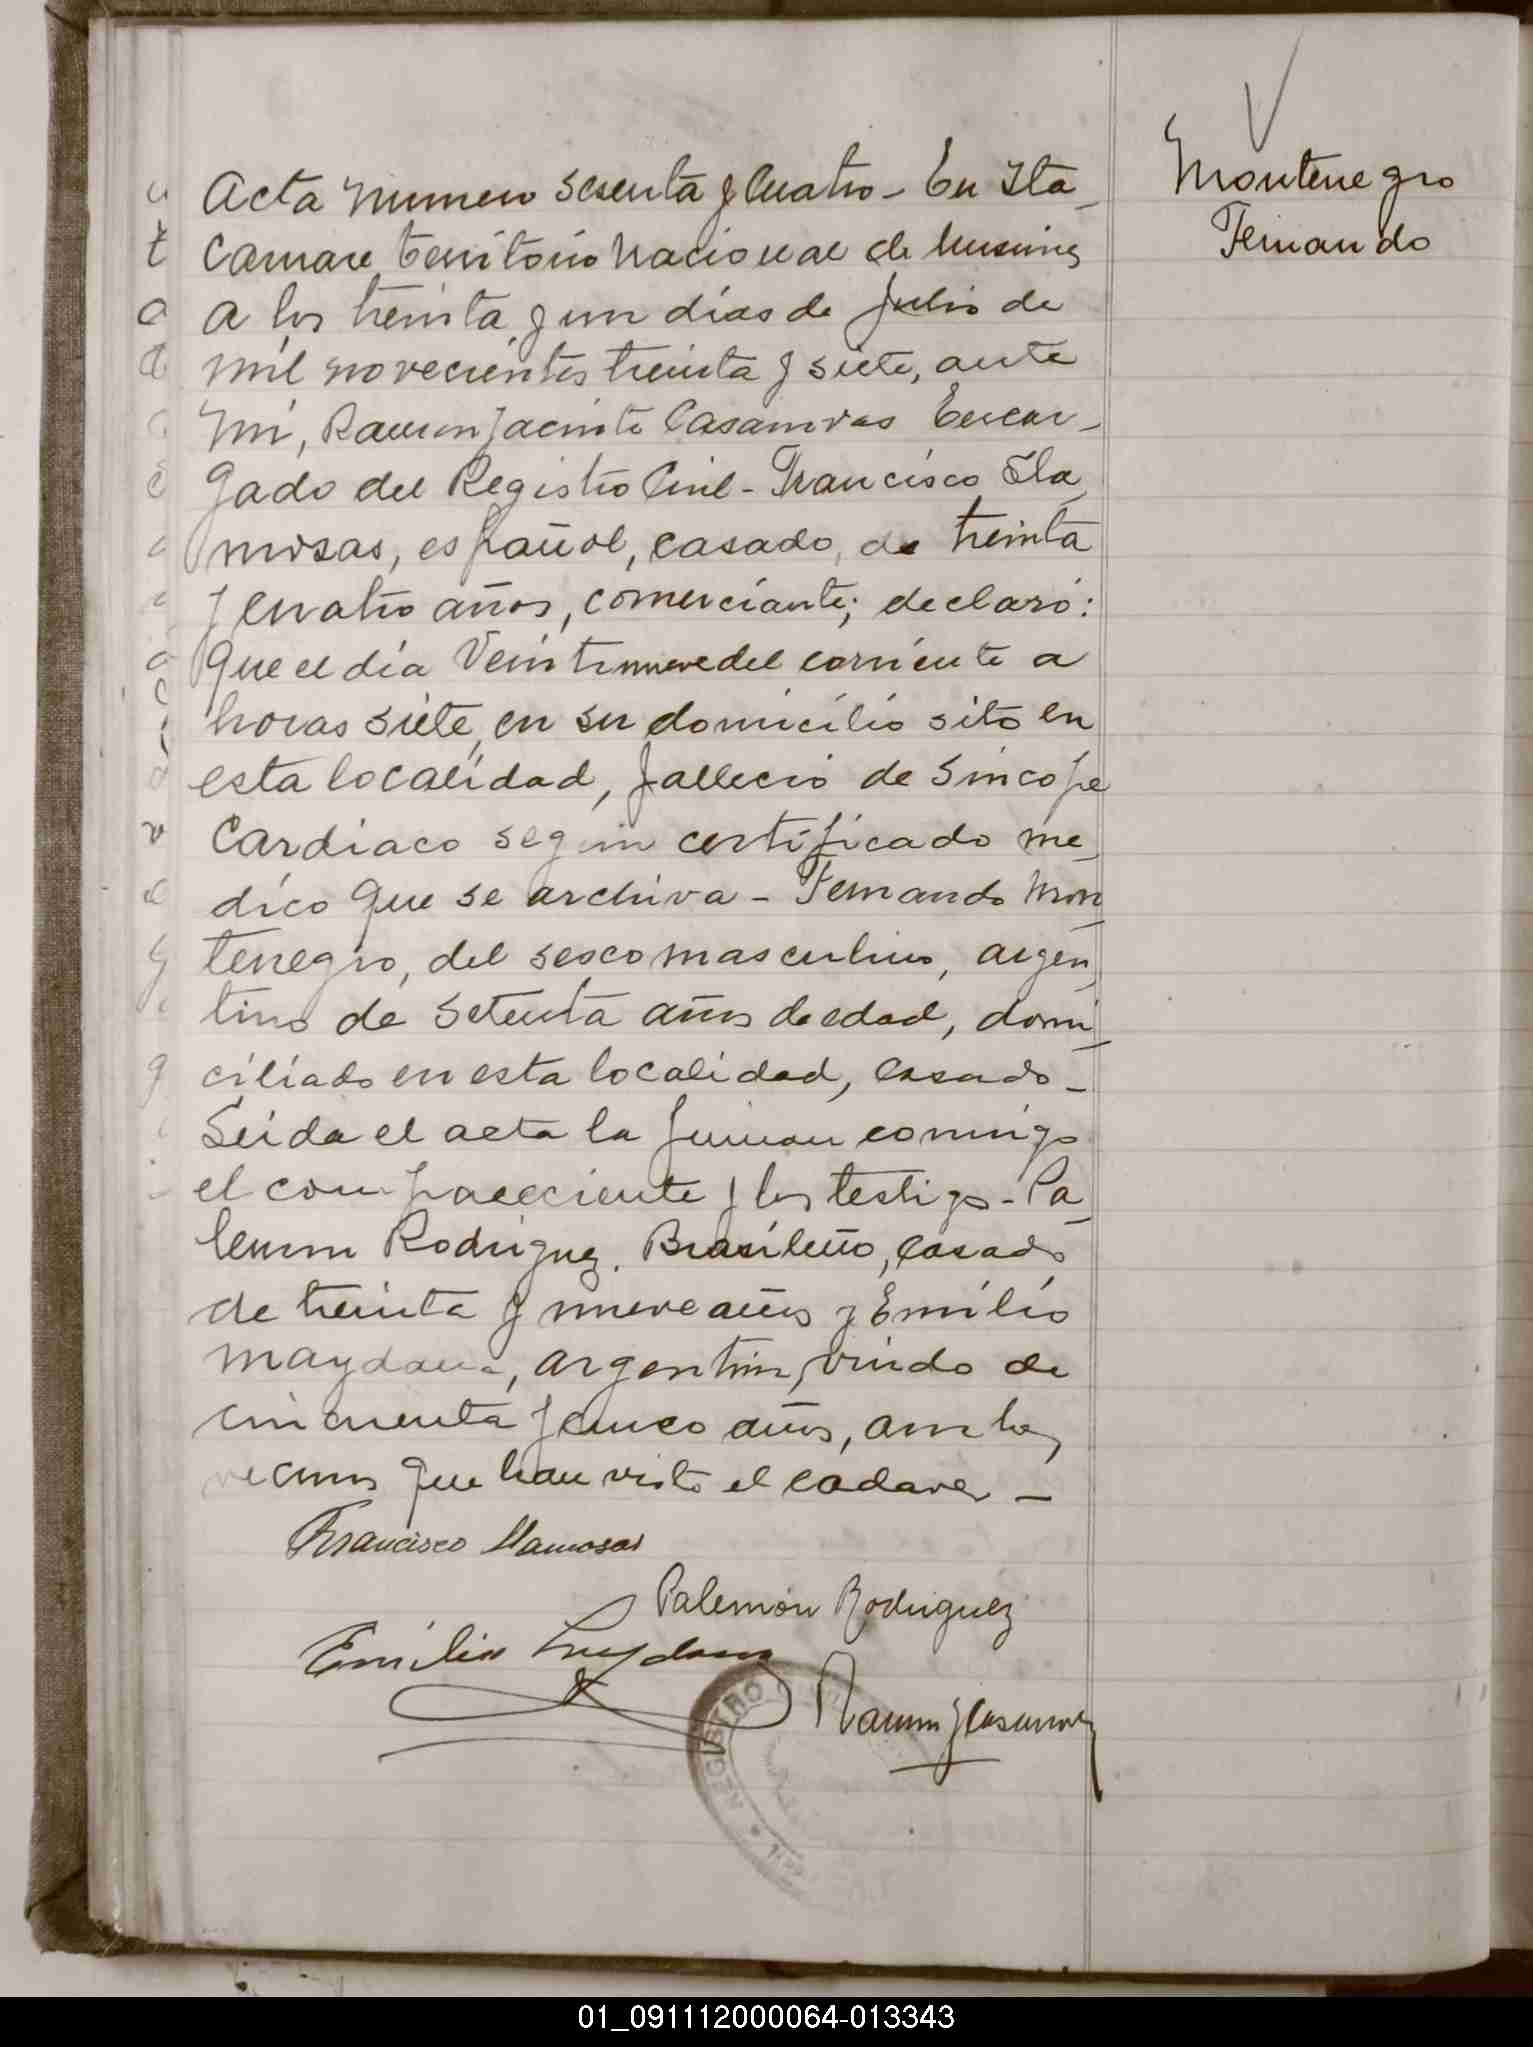 Montenegro
Fernando
Acta Numero sesenta y cuatro - En Ita-
camare territorio Nacional de Misiones
a los treinta y un días de Julio de
mil novecientos treinta y siete, ante
Mi, Ramon Jacinto Casanovas Encar-
gado del Registro Civil - Francisco Lla-
mosas, español, casado, de treinta
y cuatro años, comerciante; declaró:
Que el día Veintinueve del corriente a
horas siete, en su domicilio sito en
esta localidad, fallecio de Sincope
Cardiaco segun certificado me-
dico que se archiva - Fernando Mon-
tenegro, del sesco masculino, argen-
tino de setenta años de edad, domi-
ciliado en esta localidad, casado -
Leida el acta la firman comigo
el compareciente y los testigos - Pa-
lemon Rodriguez, Brasileño, casado
de treinta y nueve años y Emilio
Maydana, argentino, viudo de
cincuenta y cinco años, ambos
vecinos que han visto el cadaver -
Francisco Llamosas
Palemón Rodriguez
Emilio Maydana
Ramon J Casanovas
REGISTRO
01_091112000064-013343